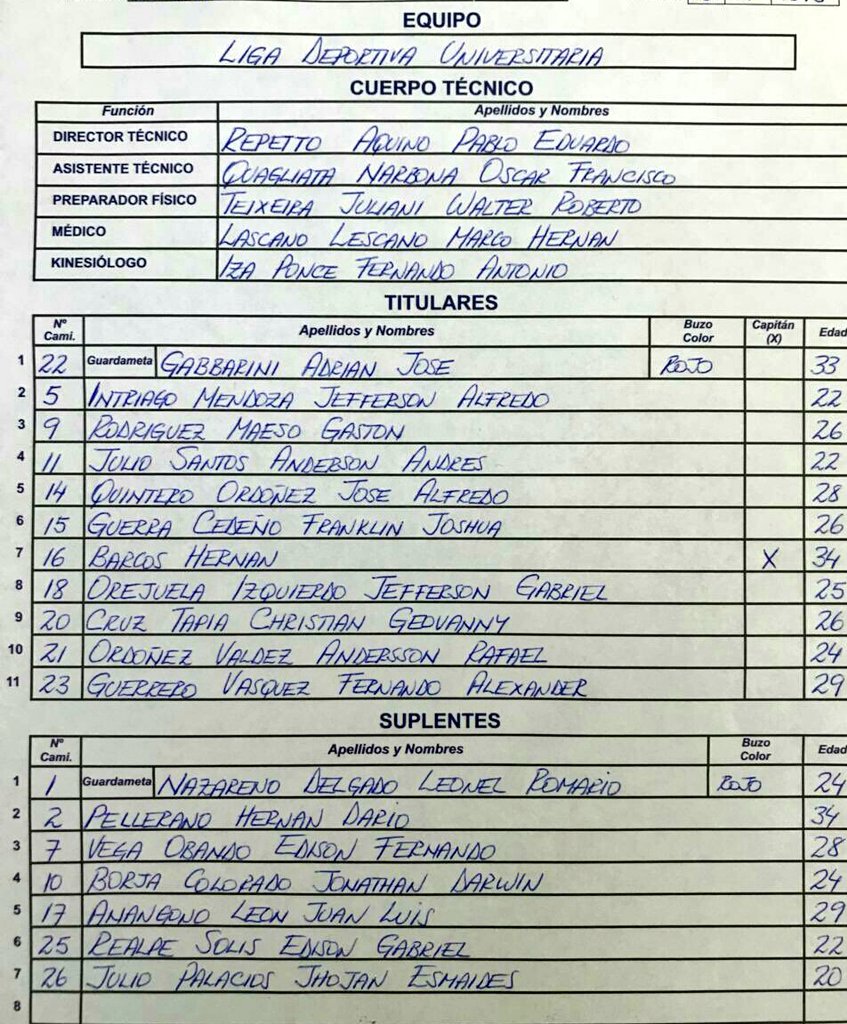 EQUIPO
LIGA DEPORTIVA UNIVERSITARIA
CUERPO TÉCNICO
Función Apellidos y Nombres
DIRECTOR TÉCNICO REPETTO AQUINO PABLO EDUARDO
ASISTENTE TÉCNICO QUAGLIATA NARBONA OSCAR FRANCISCO
PREPARADOR FÍSICO TEIXEIRA JULIANI WALTER ROBERTO
MÉDICO LASCANO LESCANO MARCO HERNAN
KINESIÓLOGO IZA PONCE FERNANDO ANTONIO
TITULARES
Nº Cami. Apellidos y Nombres Buzo Color Capitán (X) Edad
1 22 Guardameta GABBARINI ADRIAN JOSE ROJO 33
2 5 INTRIAGO MENDOZA JEFFERSON ALFREDO 22
3 9 RODRIGUEZ MAESO GASTON 26
4 11 JULIO SANTOS ANDERSON ANDRES 22
5 14 QUINTERO ORDOÑEZ JOSE ALFREDO 28
6 15 GUERRA CEDEÑO FRANKLIN JOSHUA 26
7 16 BARCOS HERNAN X 34
8 18 OREJUELA IZQUIERDO JEFFERSON GABRIEL 25
9 20 CRUZ TAPIA CHRISTIAN GEOVANNY 26
10 21 ORDOÑEZ VALDEZ ANDERSSON RAFAEL 24
11 23 GUERRERO VASQUEZ FERNANDO ALEXANDER 29
SUPLENTES
Nº Cami. Apellidos y Nombres Buzo Color Edad
1 1 Guardameta NAZARENO DELGADO LEONEL ROMARIO ROJO 24
2 2 PELLERANO HERNAN DARIO 34
3 7 VEGA OBANDO EDISON FERNANDO 28
4 10 BORJA COLORADO JONATHAN DARWIN 24
5 17 ANANGONO LEON JUAN LUIS 29
6 25 REALPE SOLIS EDISON GABRIEL 22
7 26 JULIO PALACIOS JHOJAN ESMAIDES 20
8